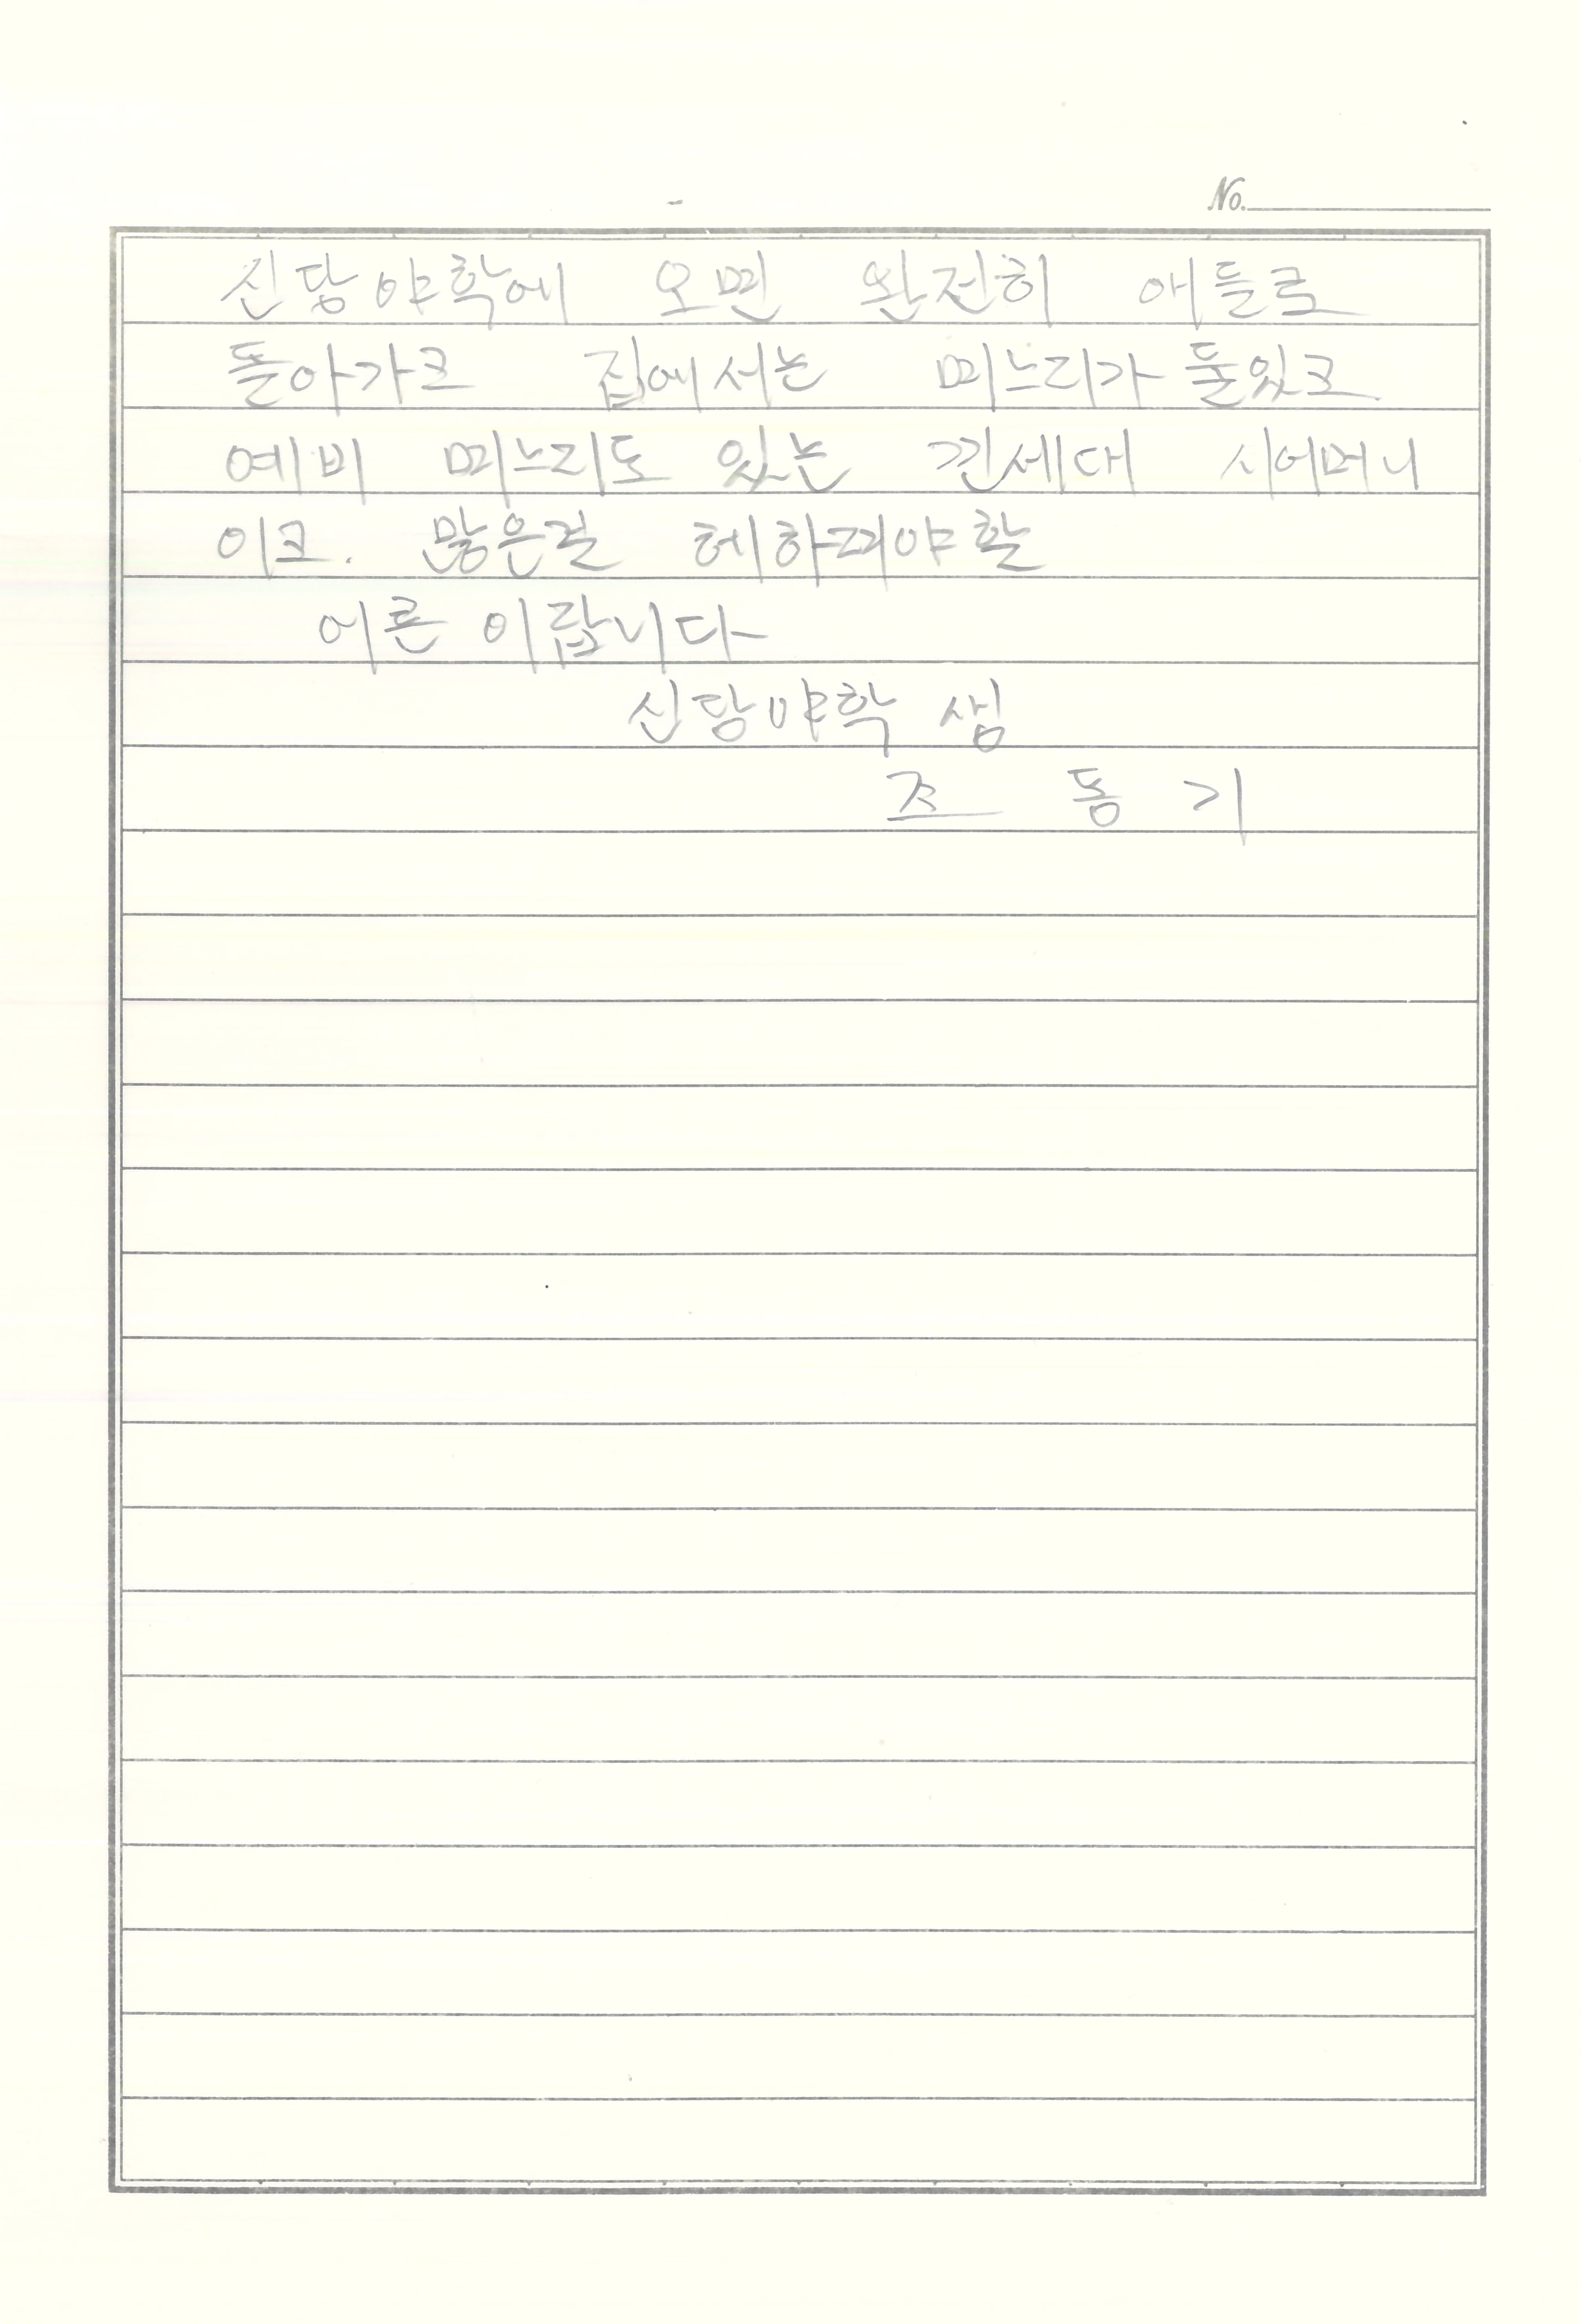 No.
신당야학에 오면 완전히 애들로
돌아가고 집에서는 며느리가 둘있고
예비 며느리도 있는 낀세대 시어머니
이고. 많은걸 헤하려야할
어른 이랍니다
신당야학 생
조 동 기